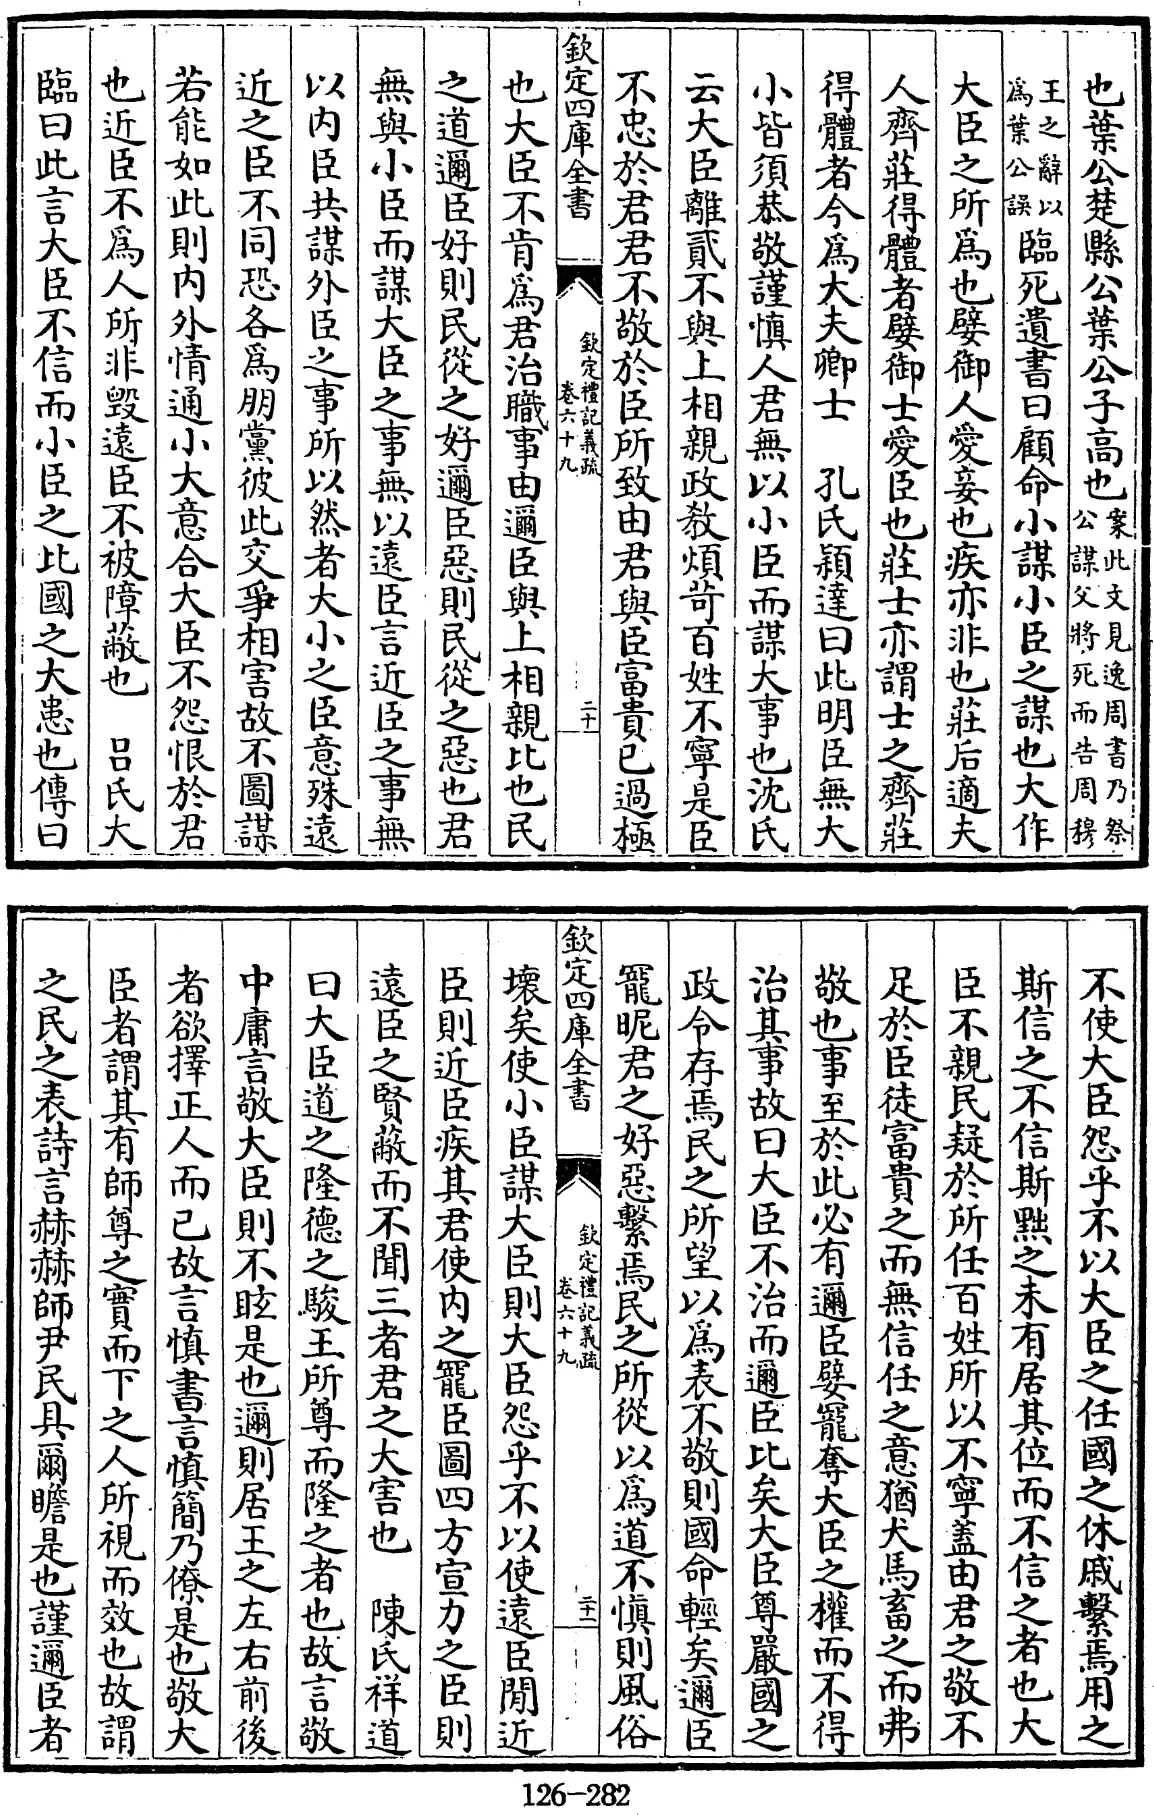 也葉公楚縣公葉公子高也案此文見逸周書乃祭公謀父將死而告周穆
王之辭以爲葉公誤臨死遺書曰顧命小謀小臣之謀也大作
大臣之所爲也嬖御人愛妾也疾亦非也莊后適夫
人齊莊得體者嬖御士愛臣也莊士亦謂士之齊莊
得體者今爲大夫卿士　孔氏穎達曰此明臣無大
小皆須恭敬謹慎人君無以小臣而謀大事也沈氏
云大臣離貳不與上相親政教煩苛百姓不寧是臣
不忠於君君不敬於臣所致由君與臣富貴已過極
欽定四庫全書
欽定禮記義疏
卷六十九
二十
也大臣不肯爲君治職事由邇臣與上相親比也民
之道邇臣好則民從之好邇臣惡則民從之惡也君
無與小臣而謀大臣之事無以遠臣言近臣之事無
以内臣共謀外臣之事所以然者大小之臣意殊遠
近之臣不同恐各爲朋黨彼此交爭相害故不圖謀
若能如此則内外情通小大意合大臣不怨恨於君
也近臣不爲人所非毀遠臣不被障蔽也　吕氏大
臨曰此言大臣不信而小臣之比國之大患也傳曰
不使大臣怨乎不以大臣之任國之休戚繫焉用之
斯信之不信斯黜之未有居其位而不信之者也大
臣不親民疑於所任百姓所以不寧蓋由君之敬不
足於臣徒富貴之而無信任之意猶犬馬畜之而弗
敬也事至於此必有邇臣嬖寵奪大臣之權而不得
治其事故曰大臣不治而邇臣比矣大臣尊嚴國之
政令存焉民之所望以爲表不敬則國命輕矣邇臣
寵昵君之好惡繫焉民之所從以爲道不慎則風俗
欽定四庫全書
欽定禮記義疏
卷六十九
二十一
壞矣使小臣謀大臣則大臣怨乎不以使遠臣間近
臣則近臣疾其君使内之寵臣圖四方宣力之臣則
遠臣之賢蔽而不聞三者君之大害也　陳氏祥道
曰大臣道之隆德之駿王所尊而隆之者也故言敬
中庸言敬大臣則不眩是也邇則居王之左右前後
者欲擇正人而已故言慎書言慎簡乃僚是也敬大
臣者謂其有師尊之實而下之人所視而效也故謂
之民之表詩言赫赫師尹民具爾瞻是也謹邇臣者
126-282